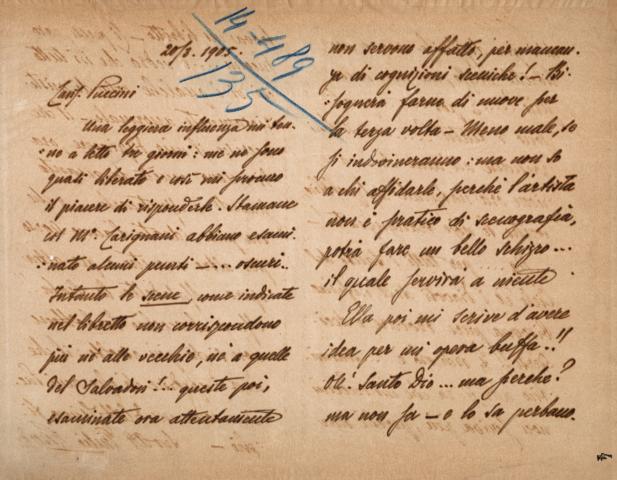 20/3. 1905.
14-489
135
Caro Puccini
Una leggiera influenza mi ten-
:ne a letto tre giorni: me ne sono
quasi liberato e così mi procuro
il piacere di risponderle. Stamane
col Mo. Carignani abbiamo esami-
:nato alcuni punti - ... oscuri..
Intanto le scene, come indicate
nel libretto non corrispondono
più nè alle vecchie, nè a quelle
del Salvadori!... queste poi,
esaminate ora attentamente
non servono affatto, per mancan-
za di cognizioni sceniche! - Bi-
:sognerà farne di nuove per
la terza volta - Meno male, se
si indovineranno: ma non so
a chi affidarle, perchè l'artista
non è pratico di scenografia,
potrà fare un bello schizzo...
il quale servirà a niente
Ella poi mi scrive d'avere
idea per un opera buffa..!!
Oh! Santo Dio... ma perchè?
ma non sa - e lo sa